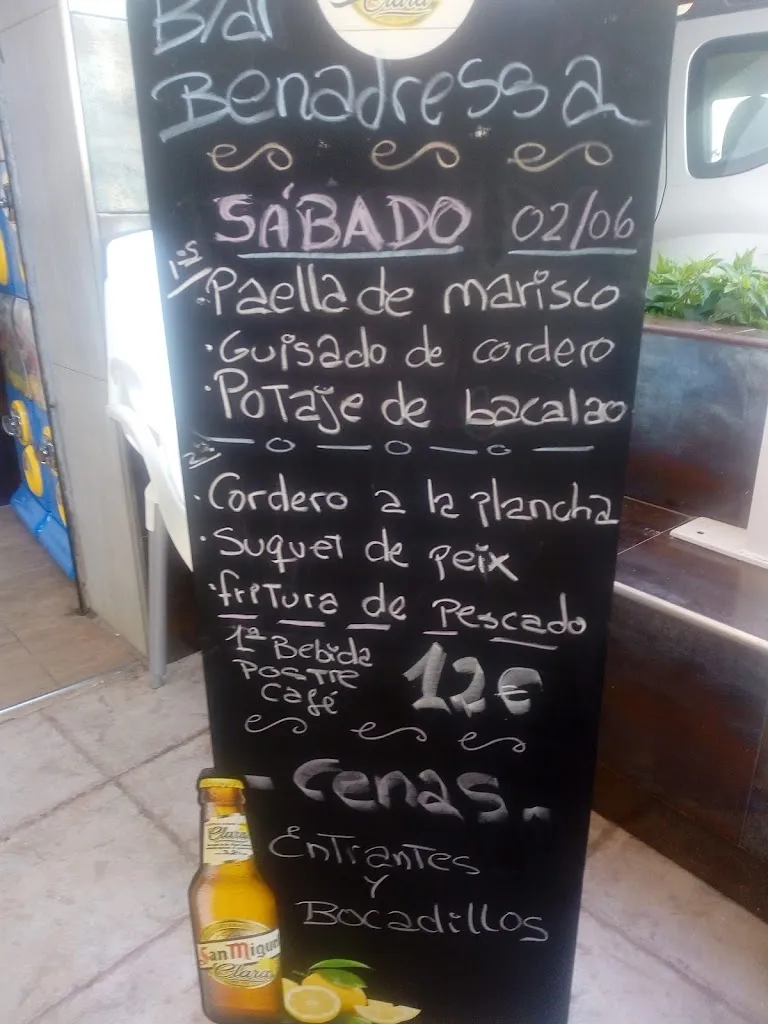 Clara
B/d
Benadressa
SÁBADO 02/06
1ºs
Paella de marisco
·Guisado de cordero
·Potaje de bacalao
2ºs
·Cordero a la plancha
·Suquet de peix
·fritura de Pescado
1ª Bebida
Postre
Café
12€
- Cenas -
Entrantes
y
Bocadillos
Clara
San Miguel
Clara